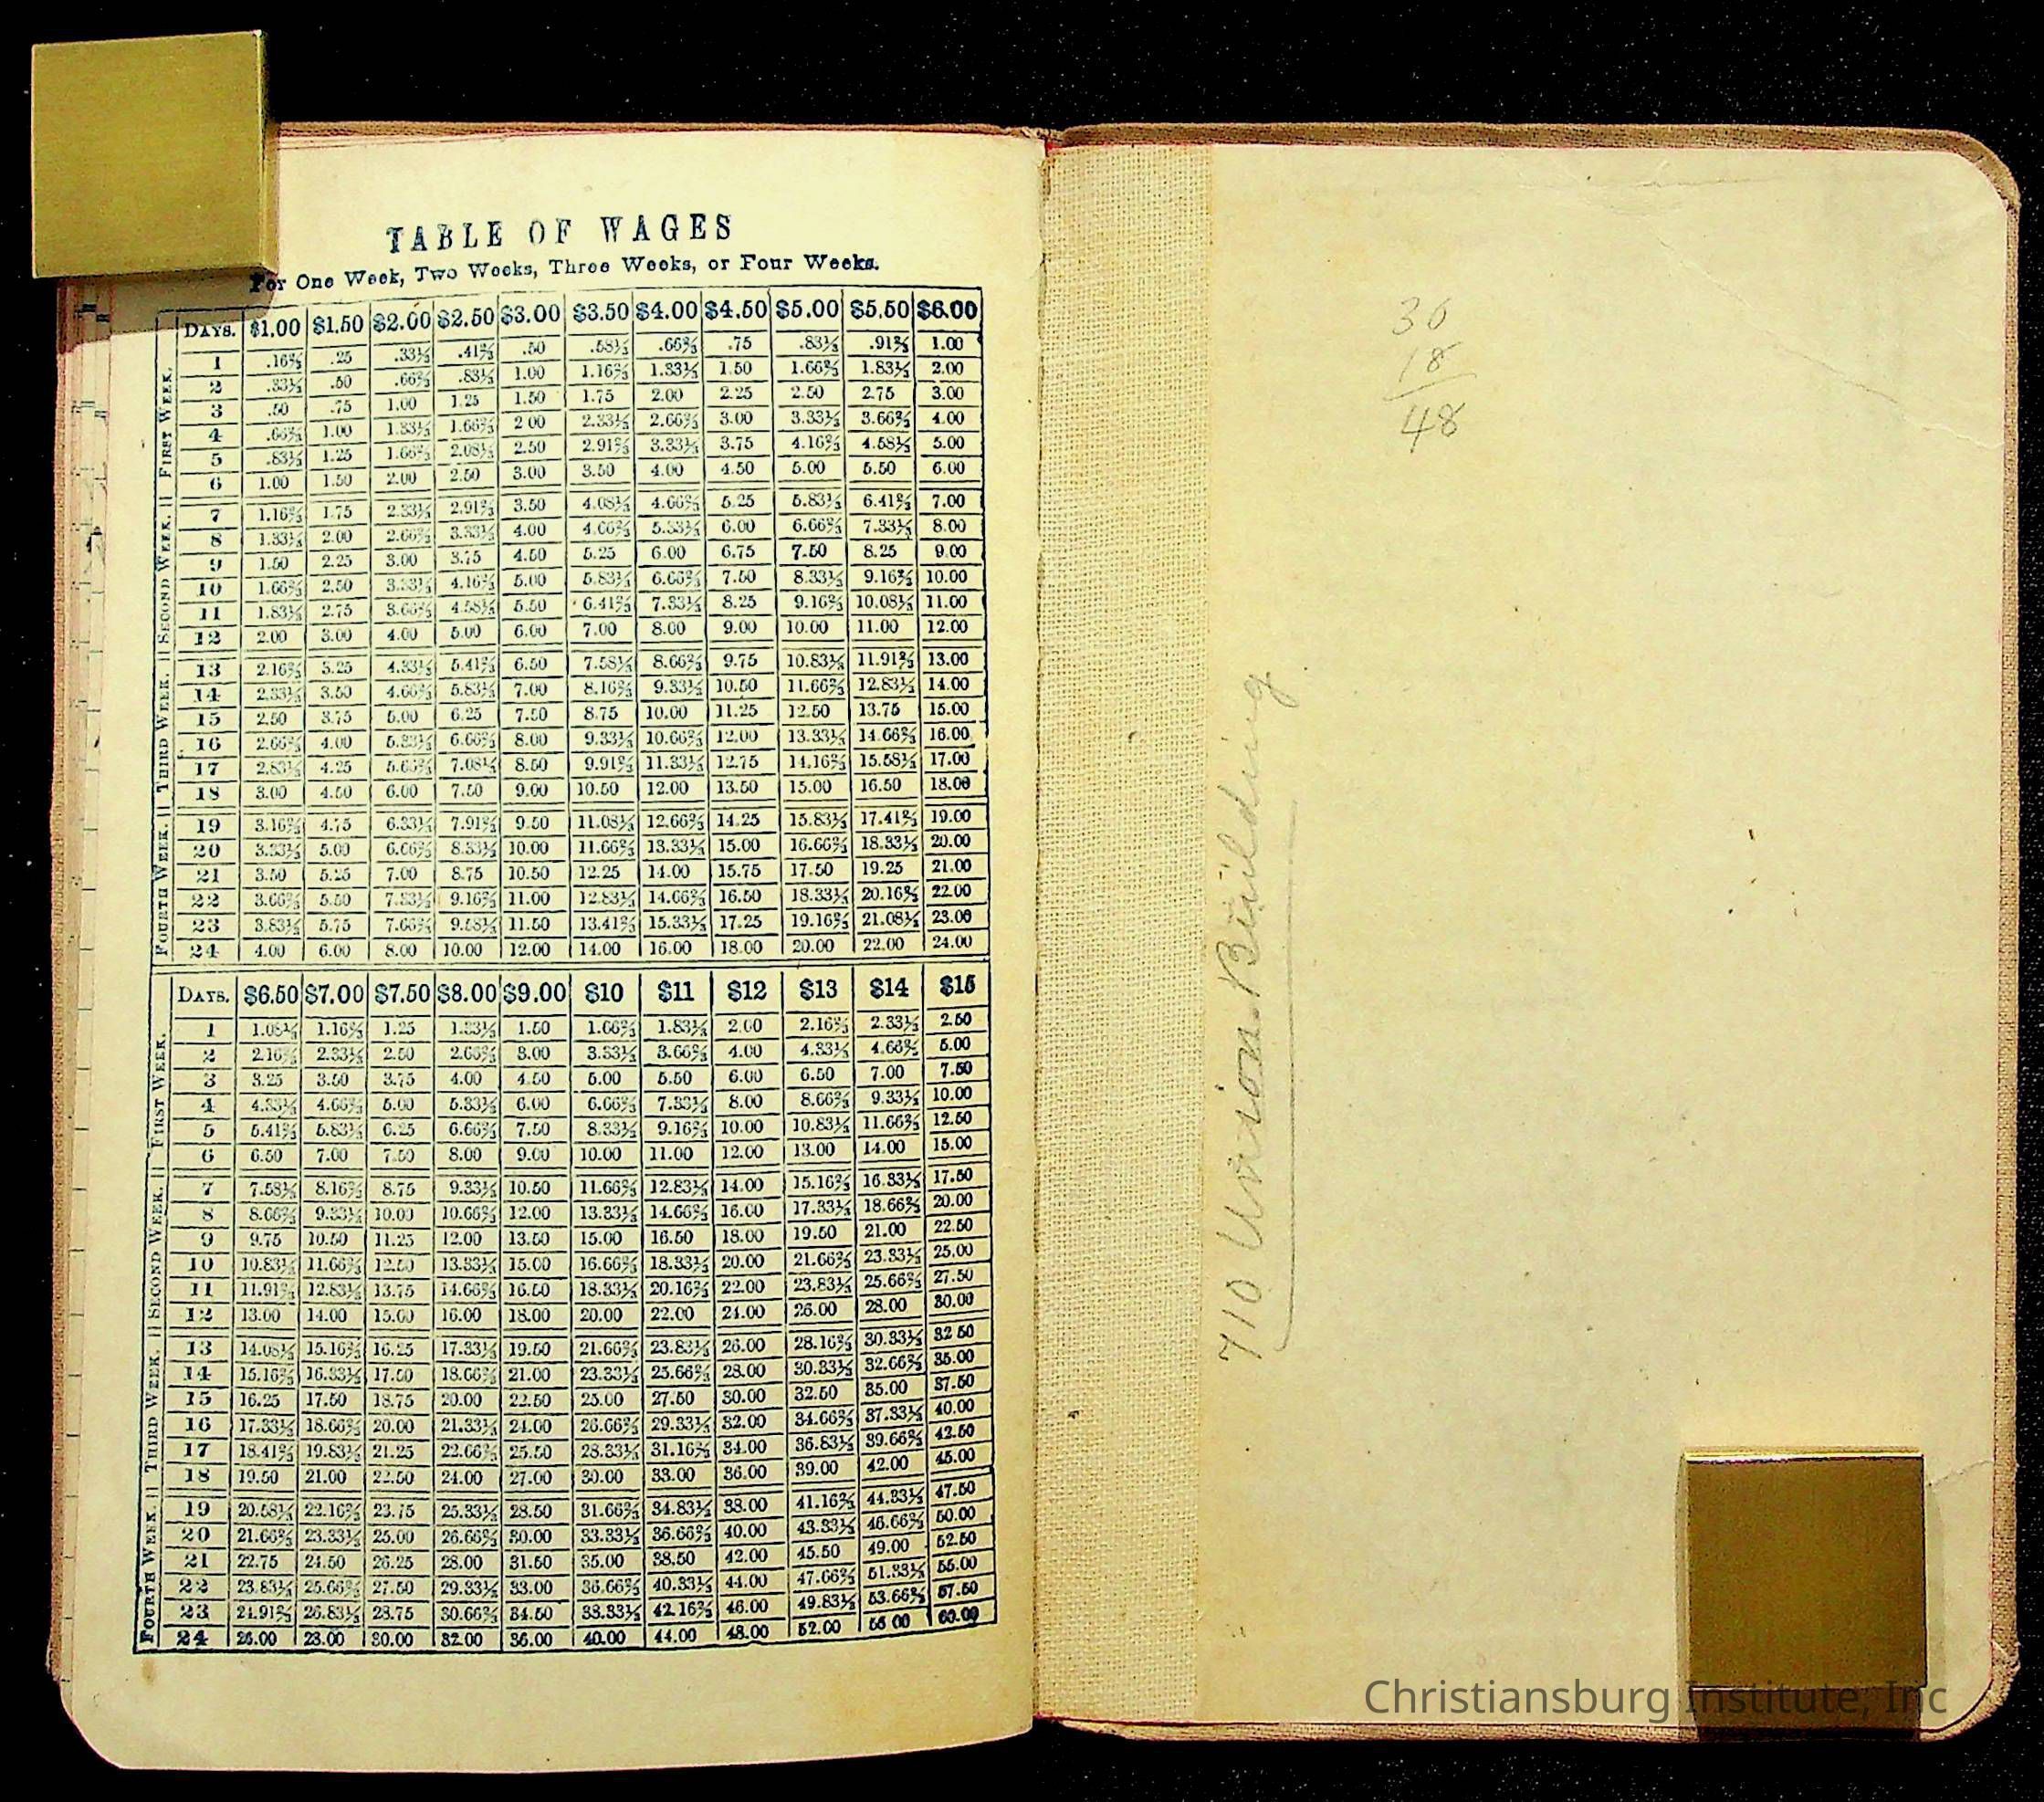 TABLE OF WAGES
For One Week, Two Weeks, Three Weeks, or Four Weeks.
DAYS. $1.00 $1.50 $2.00 $2.50 $3.00 $3.50 $4.00 $4.50 $5.00 $5.50 $6.00
FIRST WEEK.
1 .16⅔ .25 .33⅓ .41⅔ .50 .58⅓ .66⅔ .75 .83⅓ .91⅔ 1.00
2 .33⅓ .50 .66⅔ .83⅓ 1.00 1.16⅔ 1.33⅓ 1.50 1.66⅔ 1.83⅓ 2.00
3 .50 .75 1.00 1.25 1.50 1.75 2.00 2.25 2.50 2.75 3.00
4 .66⅔ 1.00 1.33⅓ 1.66⅔ 2 00 2.33⅓ 2.66⅔ 3.00 3.33⅓ 3.66⅔ 4.00
5 .83⅓ 1.25 1.66⅔ 2.08⅓ 2.50 2.91⅔ 3.33⅓ 3.75 4.16⅔ 4.58⅓ 5.00
6 1.00 1.50 2.00 2.50 3.00 3.50 4.00 4.50 5.00 5.50 6.00
SECOND WEEK.
7 1.16⅔ 1.75 2.33⅓ 2.91⅔ 3.50 4.08⅓ 4.66⅔ 5.25 5.83⅓ 6.41⅔ 7.00
8 1.33⅓ 2.00 2.66⅔ 3.33⅓ 4.00 4.66⅔ 5.33⅓ 6.00 6.66⅔ 7.33⅓ 8.00
9 1.50 2.25 3.00 3.75 4.50 5.25 6.00 6.75 7.50 8.25 9.00
10 1.66⅔ 2.50 3.33⅓ 4.16⅔ 5.00 5.83⅓ 6.66⅔ 7.50 8.33⅓ 9.16⅔ 10.00
11 1.83⅓ 2.75 3.66⅔ 4.58⅓ 5.50 6.41⅔ 7.33⅓ 8.25 9.16⅔ 10.08⅓ 11.00
12 2.00 3.00 4.00 5.00 6.00 7.00 8.00 9.00 10.00 11.00 12.00
THIRD WEEK.
13 2.16⅔ 3.25 4.33⅓ 5.41⅔ 6.50 7.58⅓ 8.66⅔ 9.75 10.83⅓ 11.91⅔ 13.00
14 2.33⅓ 3.50 4.66⅔ 5.83⅓ 7.00 8.16⅔ 9.33⅓ 10.50 11.66⅔ 12.83⅓ 14.00
15 2.50 3.75 5.00 6.25 7.50 8.75 10.00 11.25 12.50 13.75 15.00
16 2.66⅔ 4.00 5.33⅓ 6.66⅔ 8.00 9.33⅓ 10.66⅔ 12.00 13.33⅓ 14.66⅔ 16.00
17 2.83⅓ 4.25 5.66⅔ 7.08⅓ 8.50 9.91⅔ 11.33⅓ 12.75 14.16⅔ 15.58⅓ 17.00
18 3.00 4.50 6.00 7.50 9.00 10.50 12.00 13.50 15.00 16.50 18.00
FOURTH WEEK.
19 3.16⅔ 4.75 6.33⅓ 7.91⅔ 9.50 11.08⅓ 12.66⅔ 14.25 15.83⅓ 17.41⅔ 19.00
20 3.33⅓ 5.00 6.66⅔ 8.33⅓ 10.00 11.66⅔ 13.33⅓ 15.00 16.66⅔ 18.33⅓ 20.00
21 3.50 5.25 7.00 8.75 10.50 12.25 14.00 15.75 17.50 19.25 21.00
22 3.66⅔ 5.50 7.33⅓ 9.16⅔ 11.00 12.83⅓ 14.66⅔ 16.50 18.33⅓ 20.16⅔ 22.00
23 3.83⅓ 5.75 7.66⅔ 9.58⅓ 11.50 13.41⅔ 15.33⅓ 17.25 19.16⅔ 21.08⅓ 23.00
24 4.00 6.00 8.00 10.00 12.00 14.00 16.00 18.00 20.00 22.00 24.00
DAYS. $6.50 $7.00 $7.50 $8.00 $9.00 $10 $11 $12 $13 $14 $15
FIRST WEEK.
1 1.08⅓ 1.16⅔ 1.25 1.33⅓ 1.50 1.66⅔ 1.83⅓ 2.00 2.16⅔ 2.33⅓ 2.50
2 2.16⅔ 2.33⅓ 2.50 2.66⅔ 3.00 3.33⅓ 3.66⅔ 4.00 4.33⅓ 4.66⅔ 5.00
3 3.25 3.50 3.75 4.00 4.50 5.00 5.50 6.00 6.50 7.00 7.50
4 4.33⅓ 4.66⅔ 5.00 5.33⅓ 6.00 6.66⅔ 7.33⅓ 8.00 8.66⅔ 9.33⅓ 10.00
5 5.41⅔ 5.83⅓ 6.25 6.66⅔ 7.50 8.33⅓ 9.16⅔ 10.00 10.83⅓ 11.66⅔ 12.50
6 6.50 7.00 7.50 8.00 9.00 10.00 11.00 12.00 13.00 14.00 15.00
SECOND WEEK.
7 7.58⅓ 8.16⅔ 8.75 9.33⅓ 10.50 11.66⅔ 12.83⅓ 14.00 15.16⅔ 16.33⅓ 17.50
8 8.66⅔ 9.33⅓ 10.00 10.66⅔ 12.00 13.33⅓ 14.66⅔ 16.00 17.33⅓ 18.66⅔ 20.00
9 9.75 10.50 11.25 12.00 13.50 15.00 16.50 18.00 19.50 21.00 22.50
10 10.83⅓ 11.66⅔ 12.50 13.33⅓ 15.00 16.66⅔ 18.33⅓ 20.00 21.66⅔ 23.33⅓ 25.00
11 11.91⅔ 12.83⅓ 13.75 14.66⅔ 16.50 18.33⅓ 20.16⅔ 22.00 23.83⅓ 25.66⅔ 27.50
12 13.00 14.00 15.00 16.00 18.00 20.00 22.00 24.00 26.00 28.00 30.00
THIRD WEEK.
13 14.08⅓ 15.16⅔ 16.25 17.33⅓ 19.50 21.66⅔ 23.83⅓ 26.00 28.16⅔ 30.33⅓ 32 50
14 15.16⅔ 16.33⅓ 17.50 18.66⅔ 21.00 23.33⅓ 25.66⅔ 28.00 30.33⅓ 32.66⅔ 35.00
15 16.25 17.50 18.75 20.00 22.50 25.00 27.50 30.00 32.50 35.00 37.50
16 17.33⅓ 18.66⅔ 20.00 21.33⅓ 24.00 26.66⅔ 29.33⅓ 32.00 34.66⅔ 37.33⅓ 40.00
17 18.41⅔ 19.83⅓ 21.25 22.66⅔ 25.50 28.33⅓ 31.16⅔ 34.00 36.83⅓ 39.66⅔ 42.50
18 19.50 21.00 22.50 24.00 27.00 30.00 33.00 36.00 39.00 42.00 45.00
FOURTH WEEK.
19 20.58⅓ 22.16⅔ 23.75 25.33⅓ 28.50 31.66⅔ 34.83⅓ 38.00 41.16⅔ 44.33⅓ 47.50
20 21.66⅔ 23.33⅓ 25.00 26.66⅔ 30.00 33.33⅓ 36.66⅔ 40.00 43.33⅓ 46.66⅔ 50.00
21 22.75 24.50 26.25 28.00 31.50 35.00 38.50 42.00 45.50 49.00 52.50
22 23.83⅓ 25.66⅔ 27.50 29.33⅓ 33.00 36.66⅔ 40.33⅓ 44.00 47.66⅔ 51.33⅓ 55.00
23 24.91⅔ 26.83⅓ 28.75 30.66⅔ 34.50 38.33⅓ 42.16⅔ 46.00 49.83⅓ 53.66⅔ 57.50
24 26.00 28.00 30.00 32.00 36.00 40.00 44.00 48.00 52.00 56 00 60.00
30
18
48
710 Union Building
Christiansburg Institute, Inc